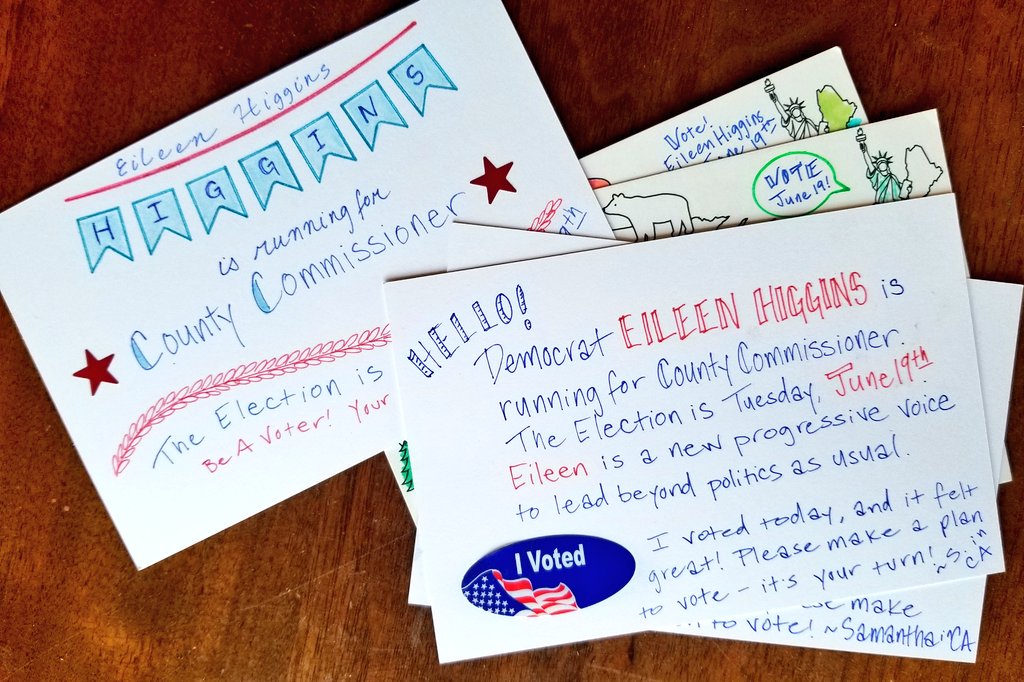 Eileen Higgins
HIGGINS
is running for
County Commissioner
The Election is
Be A Voter! Your
9th
Vote!
Eileen Higgins
June 19th
VOTE
June 19!
HELLO!
Democrat EILEEN HIGGINS is
running for County Commissioner.
The Election is Tuesday, June 19th
Eileen is a new progressive voice
to lead beyond politics as usual.
I Voted
I voted today, and it felt
great! Please make a plan
to vote - it's your turn! ~S in
CA
make
to vote! ~Samantha in CA